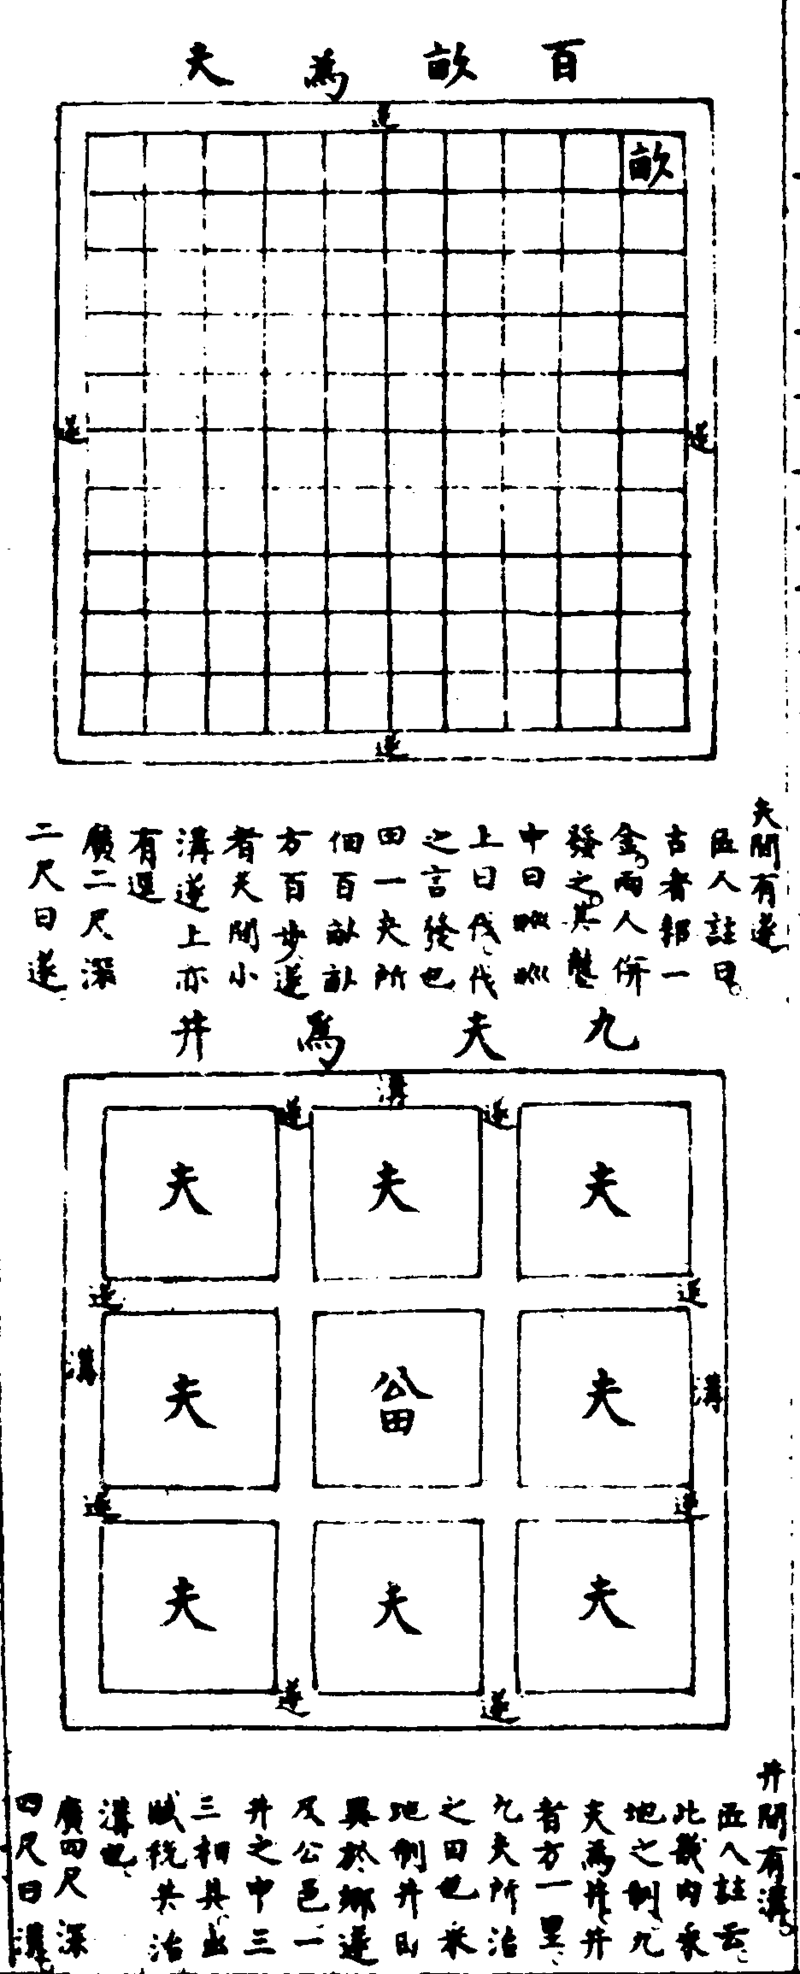 百畝爲夫
遂
畝
遂
遂
遂
夫間有遂
匠人註曰
古者耜一
金兩人併
發之其壟
中曰畎畎
上曰伐伐
之言發也
田一夫所
佃百畝畝
方百步遂
者夫間小
溝遂上亦
有逕
廣二尺深
二尺曰遂
九夫爲井
溝
遂 遂
夫 夫 夫
遂 遂
溝 溝
夫 公田 夫
遂 遂
夫 夫 夫
遂 遂
井間有溝
匠人註云
此畿内采
地之制九
夫爲井井
者方一里
九夫所治
之田也采
地制井田
異於鄉遂
及公邑一
井之中三
三相具出
賦稅共治
溝也
廣四尺深
四尺曰溝